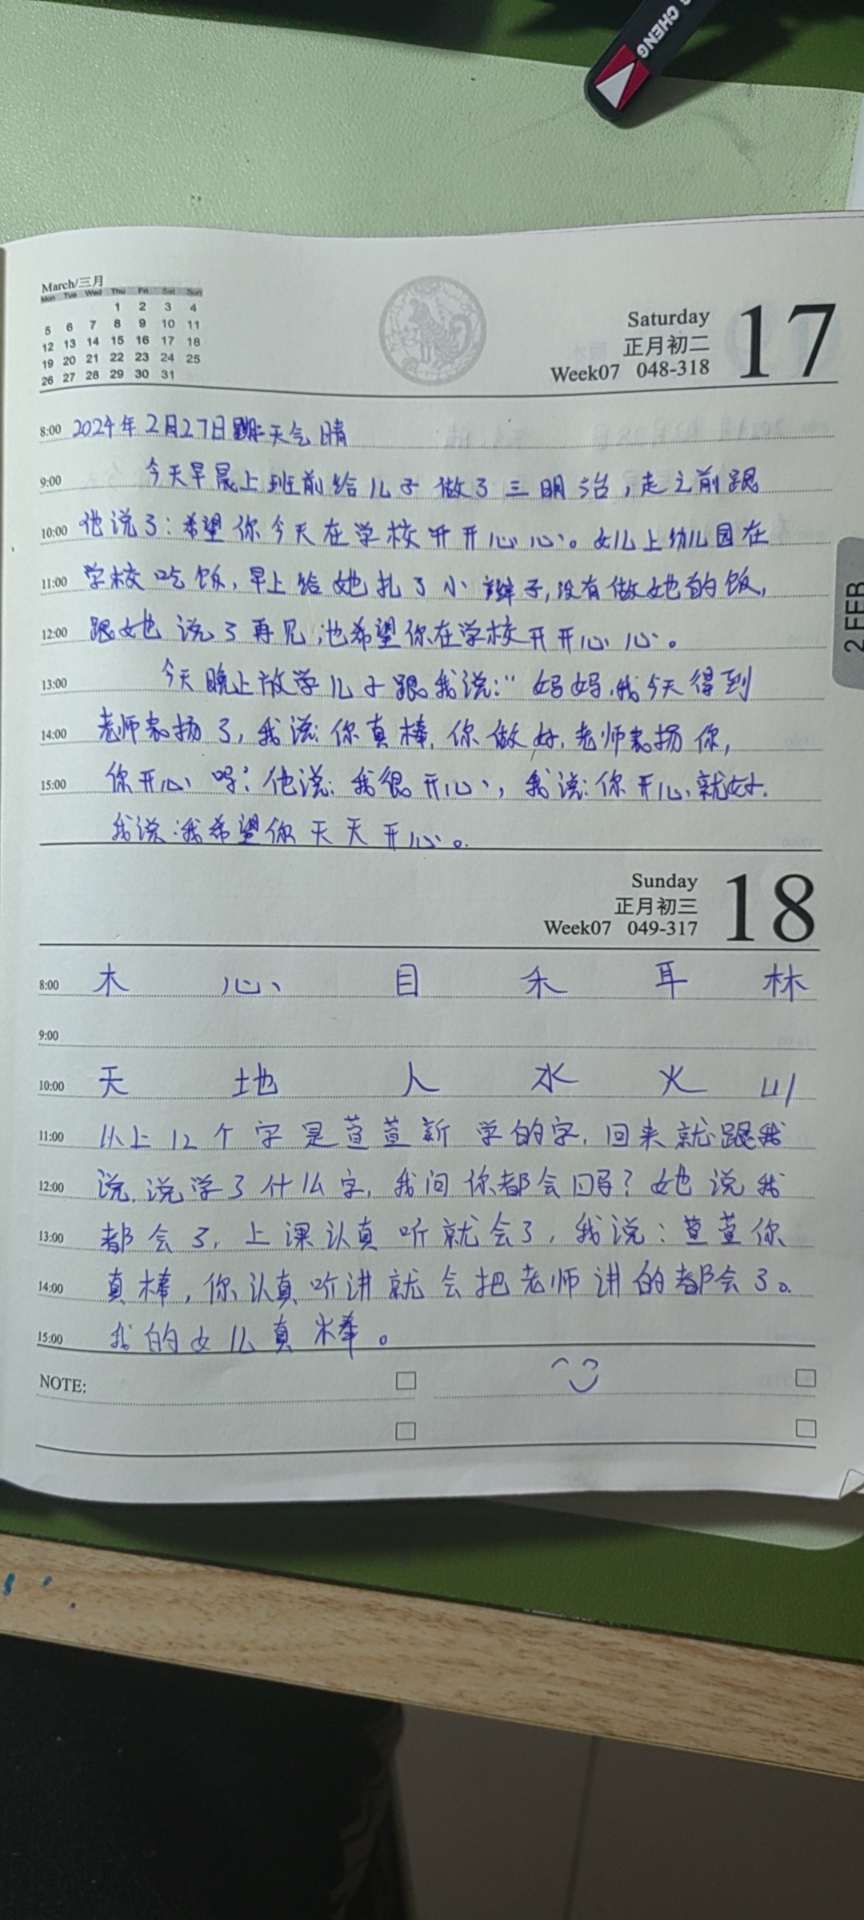 CHENG
March/三月
Mon Tue Wed Thu Fri Sat Sun
1 2 3 4
5 6 7 8 9 10 11
12 13 14 15 16 17 18
19 20 21 22 23 24 25
26 27 28 29 30 31
Saturday
正月初二
Week07 048-318
17
8:00 2024年2月27日 天气晴
9:00 今天早晨上班前给儿子做了三明治,走之前跟
10:00 他说了:希望你今天在学校开开心心。女儿上幼儿园在
11:00 学校吃饭,早上给她扎了小辫子,没有做她的饭,
12:00 跟她说了再见,也希望你在学校开开心心。
2 FEB
13:00 今天晚上放学儿子跟我说:“妈妈,我今天得到
14:00 老师表扬了,我说:你真棒,你做好,老师表扬你,
15:00 你开心吗?他说:我很开心,我说:你开心就好.
我说:我希望你天天开心。
Sunday
正月初三
Week07 049-317
18
8:00 木 心 目 禾 耳 林
9:00
10:00 天 地 人 水 火 山
11:00 以上12个字是萱萱新学的字,回来就跟我
12:00 说,说学了什么字,我问你都会吗?她说我
13:00 都会了,上课认真听就会了,我说:萱萱你
14:00 真棒,你认真听讲就会把老师讲的都会了。
15:00 我的女儿真棒。
NOTE: